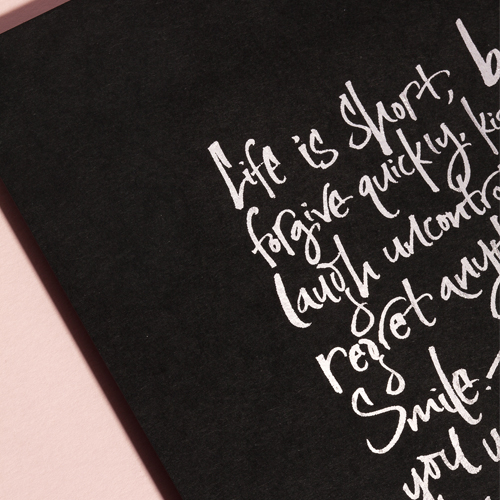 Life is short, b
forgive quickly, kis
laugh uncontro
regret any
Smile.
you